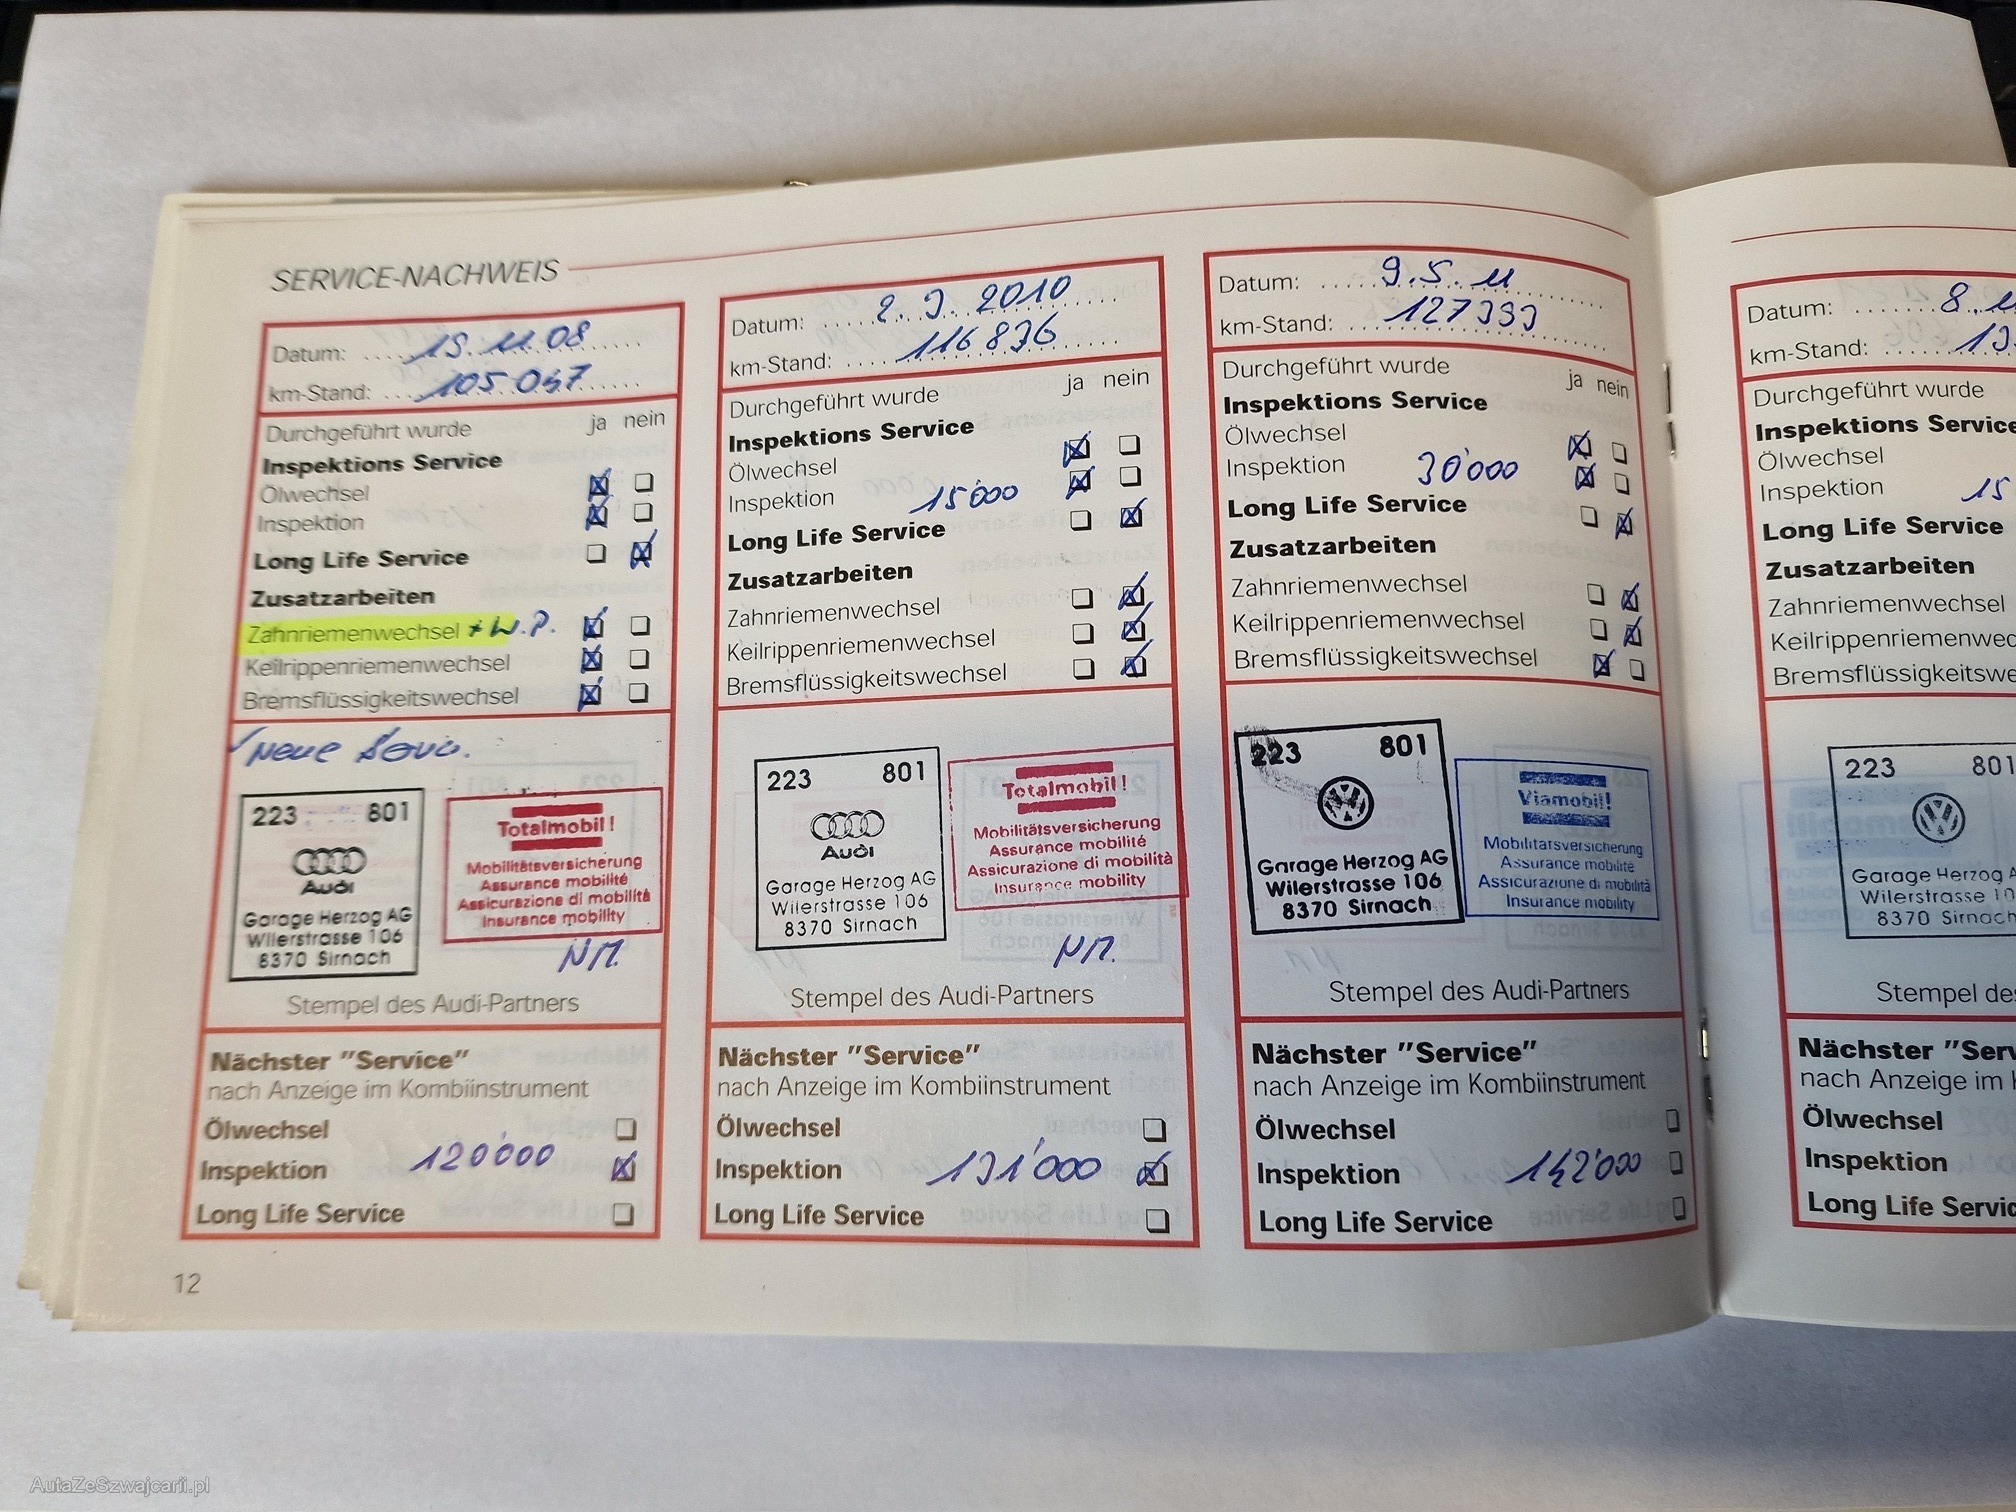 SERVICE-NACHWEIS
Datum: 08
km-Stand: 105 047
Durchgeführt wurde ja nein
Inspektions Service
Ölwechsel
Inspektion
Long Life Service
Zusatzarbeiten
Zahnriemenwechsel + W.P.
Keilrippenriemenwechsel
Bremsflüssigkeitswechsel
Neue
223 801
Audi
Garage Herzog AG
Wilerstrasse 106
8370 Sirnach
Totalmobil!
Mobilitätsversicherung
Assurance mobilité
Assicurazione di mobilità
Insurance mobility
Stempel des Audi-Partners
Nächster "Service"
nach Anzeige im Kombiinstrument
Ölwechsel
Inspektion 120'000
Long Life Service
12
Datum: 2. 9. 2010
km-Stand: 116 836
Durchgeführt wurde ja nein
Inspektions Service
Ölwechsel
Inspektion 15'000
Long Life Service
Zusatzarbeiten
Zahnriemenwechsel
Keilrippenriemenwechsel
Bremsflüssigkeitswechsel
223 801
Audi
Garage Herzog AG
Wilerstrasse 106
8370 Sirnach
Totalmobil!
Mobilitätsversicherung
Assurance mobilité
Assicurazione di mobilità
Insurance mobility
Stempel des Audi-Partners
Nächster "Service"
nach Anzeige im Kombiinstrument
Ölwechsel
Inspektion 131'000
Long Life Service
Datum: 9. 5. 11
km-Stand: 127 393
Durchgeführt wurde ja nein
Inspektions Service
Ölwechsel
Inspektion 30'000
Long Life Service
Zusatzarbeiten
Zahnriemenwechsel
Keilrippenriemenwechsel
Bremsflüssigkeitswechsel
223 801
Garage Herzog AG
Wilerstrasse 106
8370 Sirnach
Viamobil!
Mobilitätsversicherung
Assurance mobilité
Assicurazione di mobilità
Insurance mobility
Stempel des Audi-Partners
Nächster "Service"
nach Anzeige im Kombiinstrument
Ölwechsel
Inspektion 142'000
Long Life Service
Datum: 8.
km-Stand: 13
Durchgeführt wurde
Inspektions Service
Ölwechsel
Inspektion 15
Long Life Service
Zusatzarbeiten
Zahnriemenwechsel
Keilrippenriemenwec
Bremsflüssigkeitswe
223 801
Garage Herzog A
Wilerstrasse 10
8370 Sirnach
Stempel des
Nächster "Serv
nach Anzeige im K
Ölwechsel
Inspektion
Long Life Servic
AutaZeSzwajcarii.pl